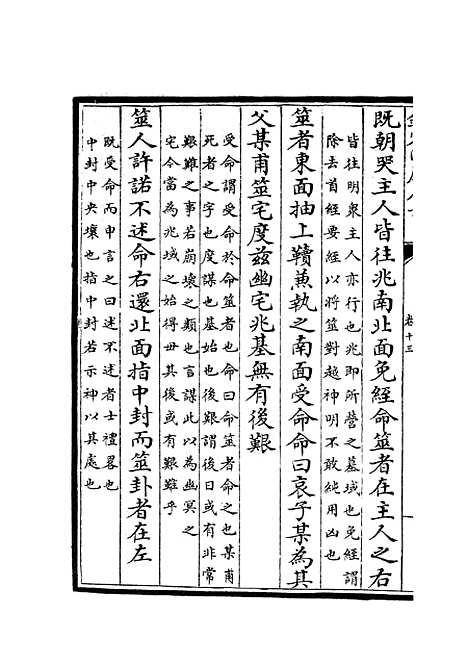 卷十三
既朝哭主人皆往兆南北面免絰命筮者在主人之右
皆往明衆主人亦行也兆即所營之墓域也免絰謂
除去首絰要絰以將筮對越神明不敢純用凶也
筮者東面抽上韇兼執之南面受命命曰哀子某為其
父某甫筮宅度茲幽宅兆基無有後艱
受命謂受命於命筮者也命曰命筮者命之也某甫
死者之字也度謀也基始也後艱謂後日或有非常
艱難之事若崩壞之類也言謀此以為幽冥之
宅今當為兆域之始得毋其後或有艱難乎
筮人許諾不述命右還北面指中封而筮卦者在左
既受命而申言之曰述不述者士禮畧也
中封中央壤也指中封若示神以其處也